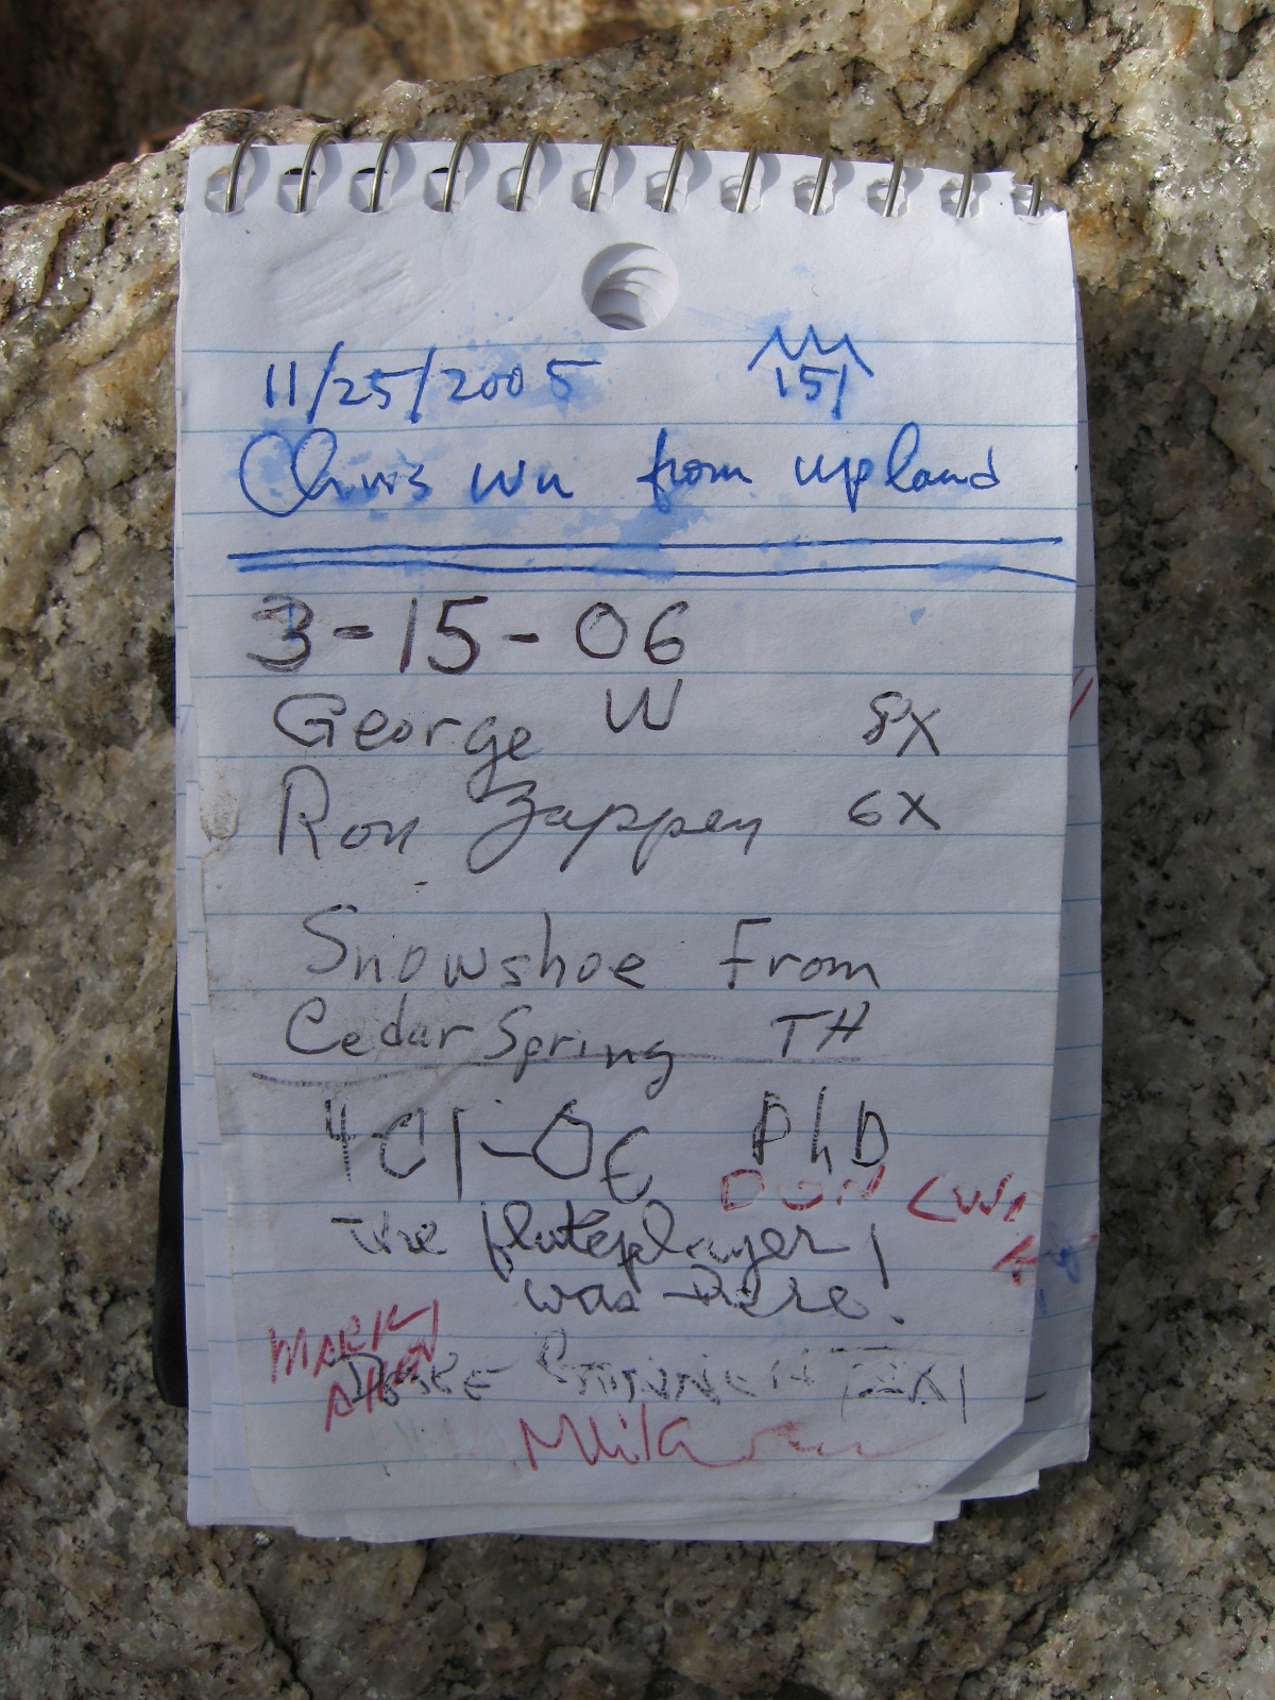 11/25/2005 151
Chris Wu from upland
3-15-06
George W 8X
Ron Zappen 6X
Snowshoe From
Cedar Spring TH
4-01-06 PhD
DON
the fluteplayer!
was here!
MARK